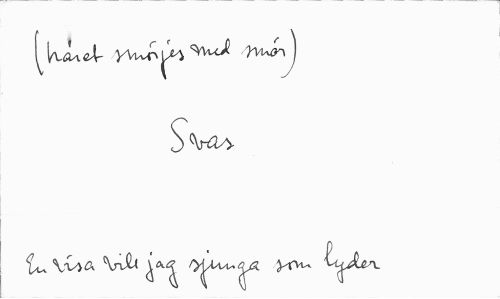 (håret smörjes med smör)
Svas
En visa vill jag sjunga som lyder